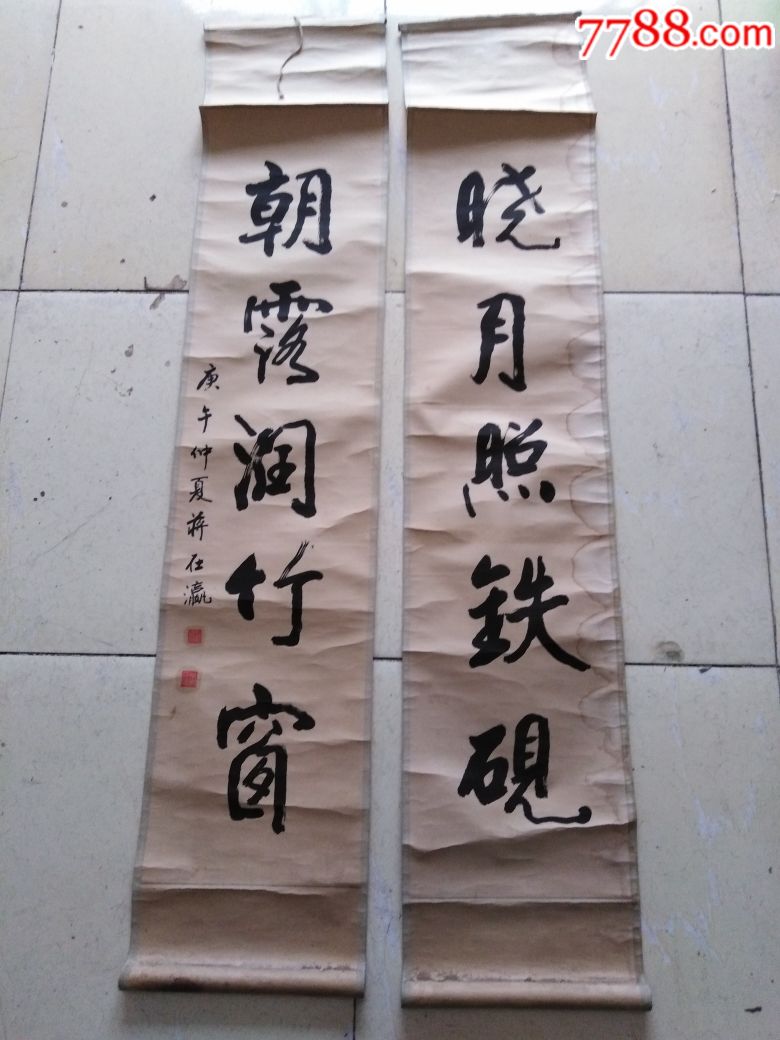 7788.com
晓月照鉄硯
朝露润竹窗
庚午仲夏蒋在瀛